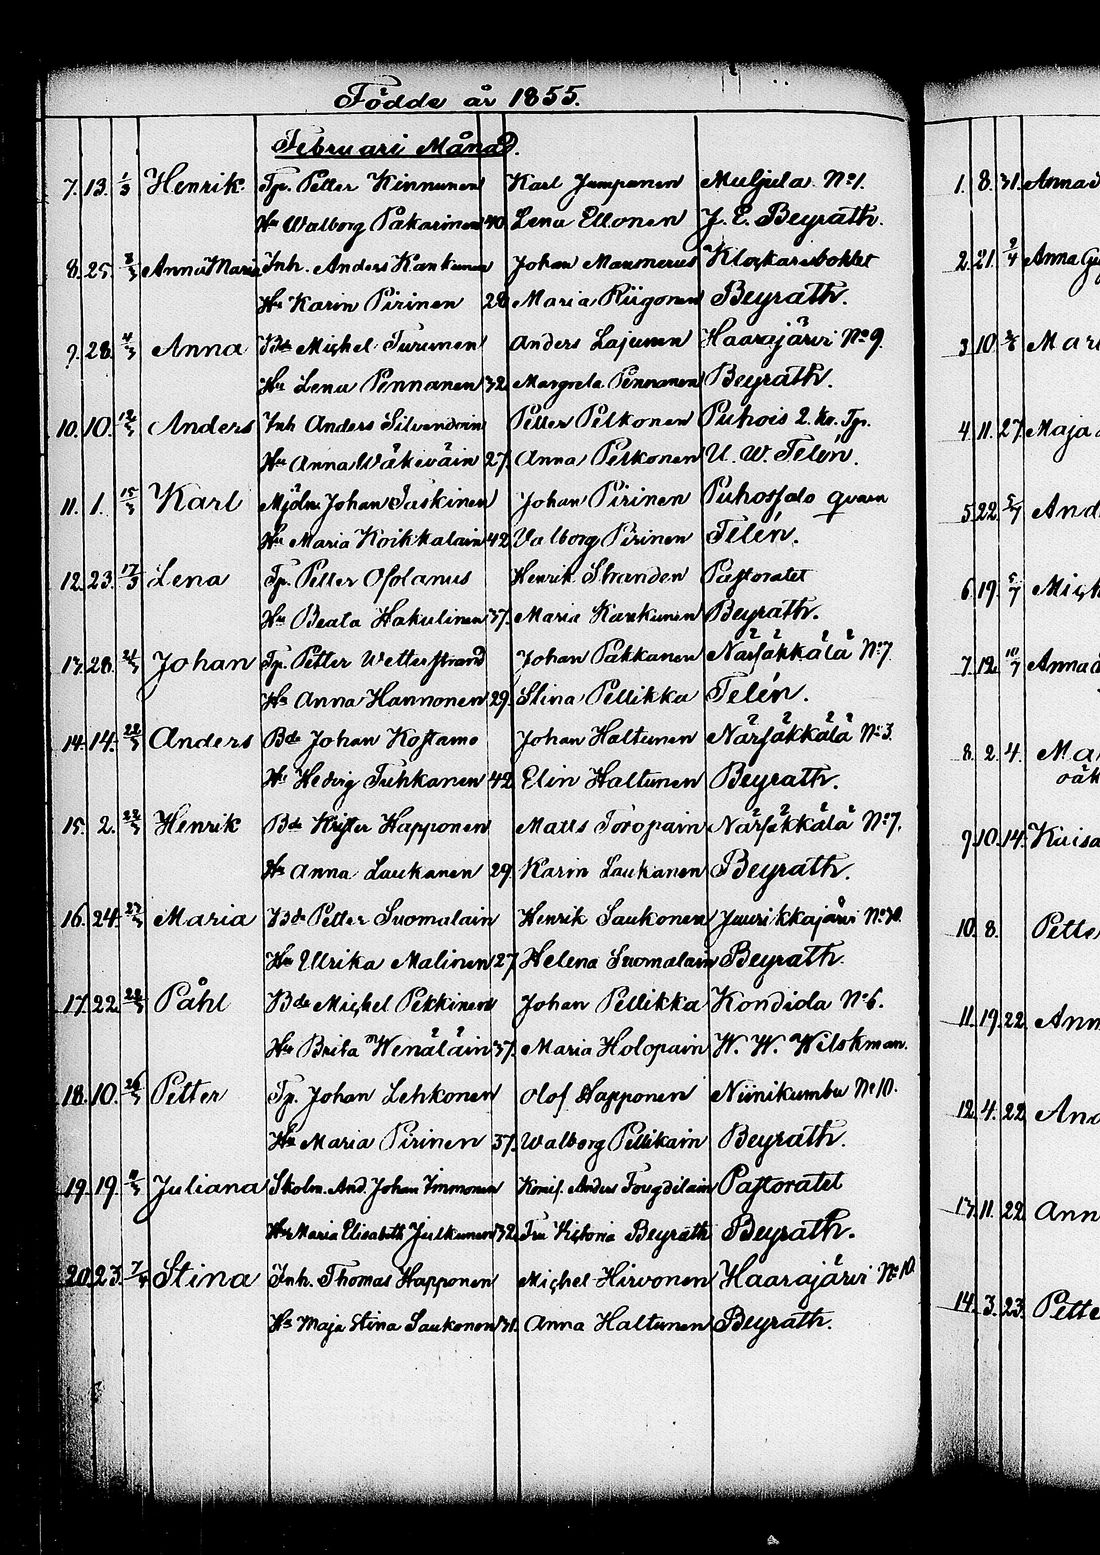 Födde år 1855.
Februari Månad.
7. 13. 1/3 Henrik Tp. Petter Kinnunen Karl Jumpanen Muljula No 1.
Hu Walborg Pakarinen 40 Lena Ellonen J. E. Beyrath.
8. 25. 2/3 Anna Maria Inh. Anders Kankunen Johan Maumerus Klockarebohlet
Hu Karin Pirinen 28 Maria Riigonen Beyrath.
9. 28. 4/3 Anna Bde Michel Turunen Anders Lajunen Haarajärvi No 9
Hu Lena Pennanen 32 Margreta Pennanen Beyrath.
10. 10. 12/3 Anders Inh Anders Silvendoin Petter Pelkonen Puhois 2. Tp.
Hu Anna Wäkeväin 27. Anna Pelkonen U. W. Telén.
11. 1. 15/3 Karl Mjöln. Johan Taskinen Johan Pirinen Puhossalo qvarn
Hu Maria Koikkalain 42 Valborg Pirinen Telén.
12. 23. 17/3 Lena Tp. Petter Ofolanus Henrik Stranden Pastoratet
Hu Beata Hakulinen 37. Maria Kankunen Beyrath.
13. 28. 21/3 Johan Tp. Petter Wetterstrand Johan Pakkanen Närsäkkälä No 7
Hu Anna Hannonen 29. Stina Pellikka Telén.
14. 14. 22/3 Anders Bde Johan Kostamo Johan Haltunen Närsäkkälä No 3.
Hu Hedvig Tuhkanen 42 Elin Haltunen Beyrath.
15. 2. 22/3 Henrik Bde Krister Happonen Matts Toropain Närsäkkälä No 7.
Hu Anna Laukanen 29. Karin Laukanen Beyrath.
16. 24. 27/3 Maria Bde Petter Suomalain Henrik Saukonen Juurikkajärvi
Hu Ullrika Malinen 27 Helena Suomalain Beyrath.
17. 22. 28/3 Påhl Bde Michel Pekkinen Johan Pellikka Kondiola No 6.
Hu Brita Wenäläin 37. Maria Holopain W. W. Wilskman.
18. 10. 26/3 Petter Tp. Johan Lehkonen Olof Happonen Niinikumbu No 10.
Hu Maria Pirinen 37. Walborg Pellikain Beyrath.
19. 19. Juliana Skolm. And. Johan Immonen Komis. Anders Fougdilain Pastoratet
Hu Maria Elisabeth Julkunen 32. Fru Victoria Beyrath Beyrath.
20. 23. 7/4 Stina Inh. Thomas Happonen Michel Hirvonen Haarajärvi No 10.
Hu Maja Stina Saukonen 31. Anna Haltunen Beyrath.
1. 8. 31. Anna
2. 21. 2/4 Anna
3 10.
4. 11. 27. Maja
5. 22. 5/7
6. 19. 5/7
7. 12. 10/7 Anna
8. 2. 4.
9. 10. 14.
10. 8.
11. 19. 22.
12. 4. 22
13. 11. 22.
14. 3. 23.